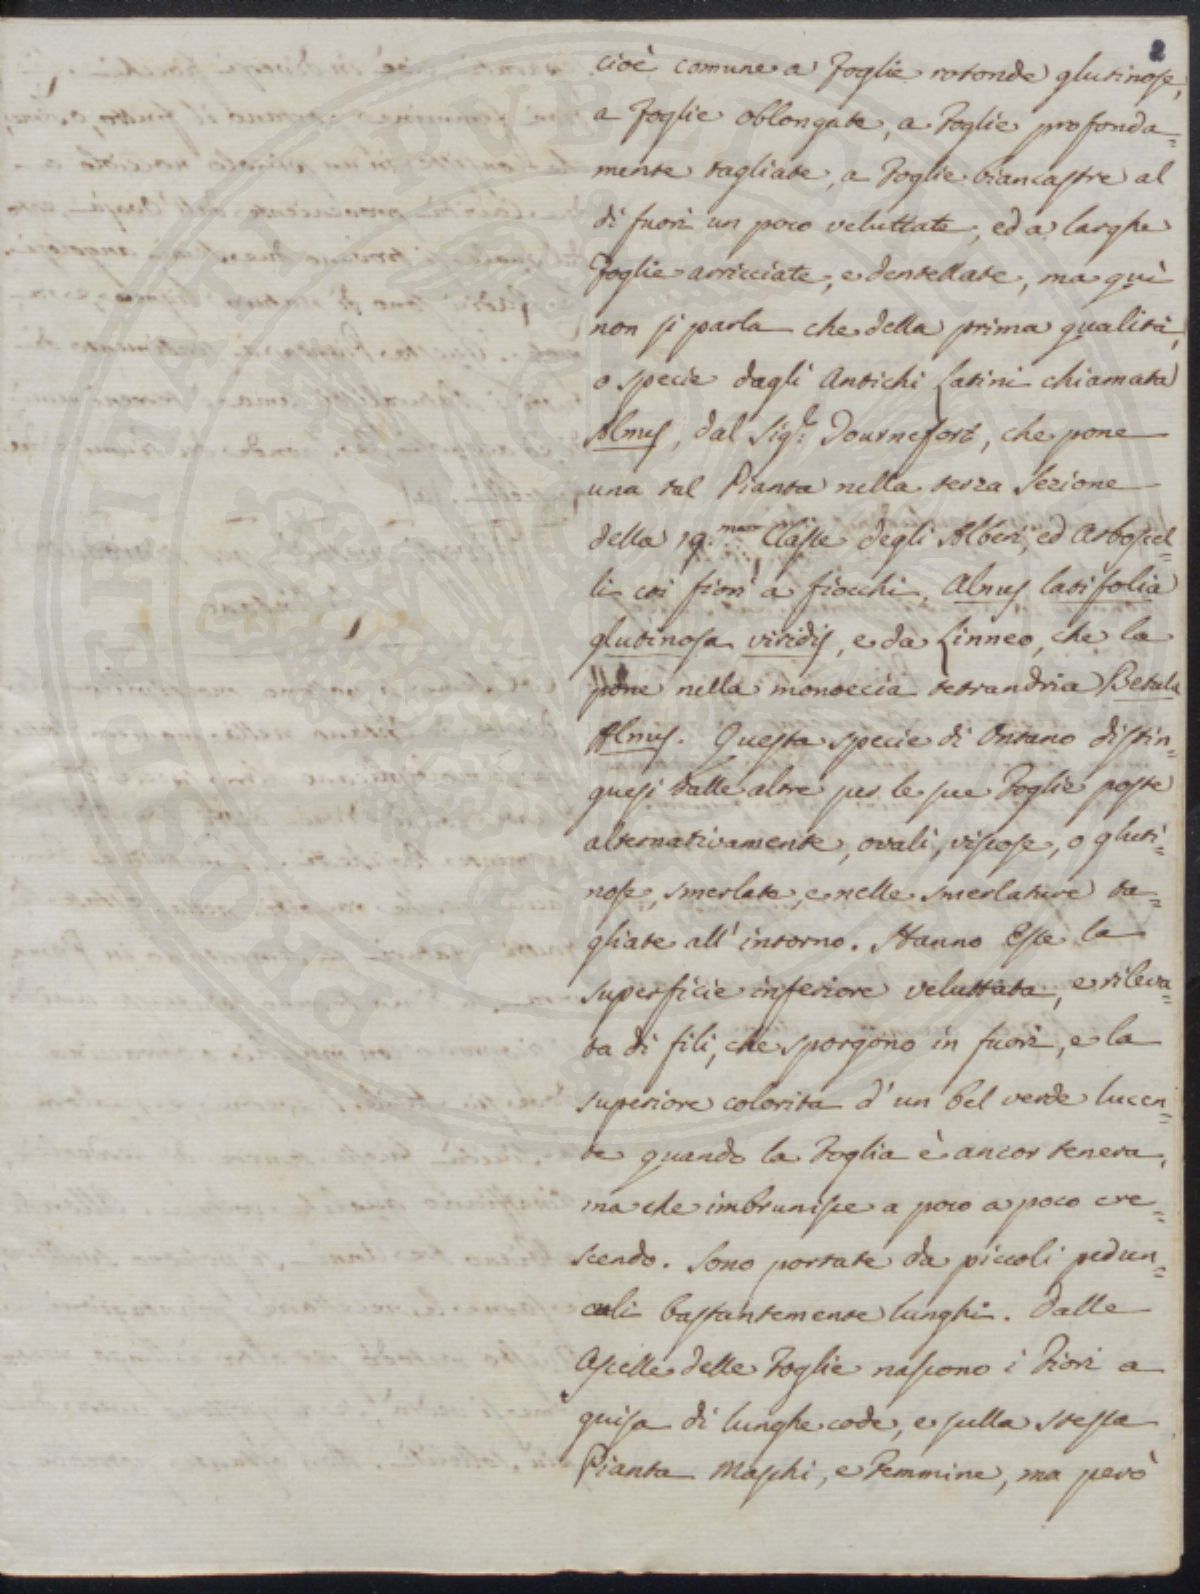 2
cioè comune a Foglie rotonde glutinose,
a Foglie oblongate, a Foglie profonda=
mente tagliate, a Foglie biancastre al
di fuori un poco veluttate, ed a larghe
Foglie arricciate, e dentellate, ma quì
non si parla che della prima qualità,
o specie dagli Antichi Latini chiamata
Alnus, dal Sig.r Tournefort, che pone
una tal Pianta nella terza Sezione
della 19.ma Classe degli Alberi, ed Arboscel=
li coi fiori a fiocchi, Alnus latifolia
glutinosa viridis, e da Linneo, che la
pone nella monoecia tetrandria Betula
Alnus. Questa specie di Ontano distin=
guesi dalle altre per le sue Foglie poste
alternativamente, ovali, viscose, o gluti=
nose, smerlate, e nelle smerlature ta=
gliate all'intorno. Hanno Esse la
superficie inferiore veluttata, e rileva=
ta di fili, che sporgono in fuori, e la
superiore colorita d'un bel verde lucen=
te quando la Foglia è ancor tenera,
ma che imbrunisce a poco a poco cre=
scendo. Sono portate da piccoli pedun=
culi bastantemente lunghi. Dalle
Ascelle delle Foglie nascono i Fiori a
guisa di lunghe code, e sulla stessa
Pianta Maschi, e Femmine, ma però